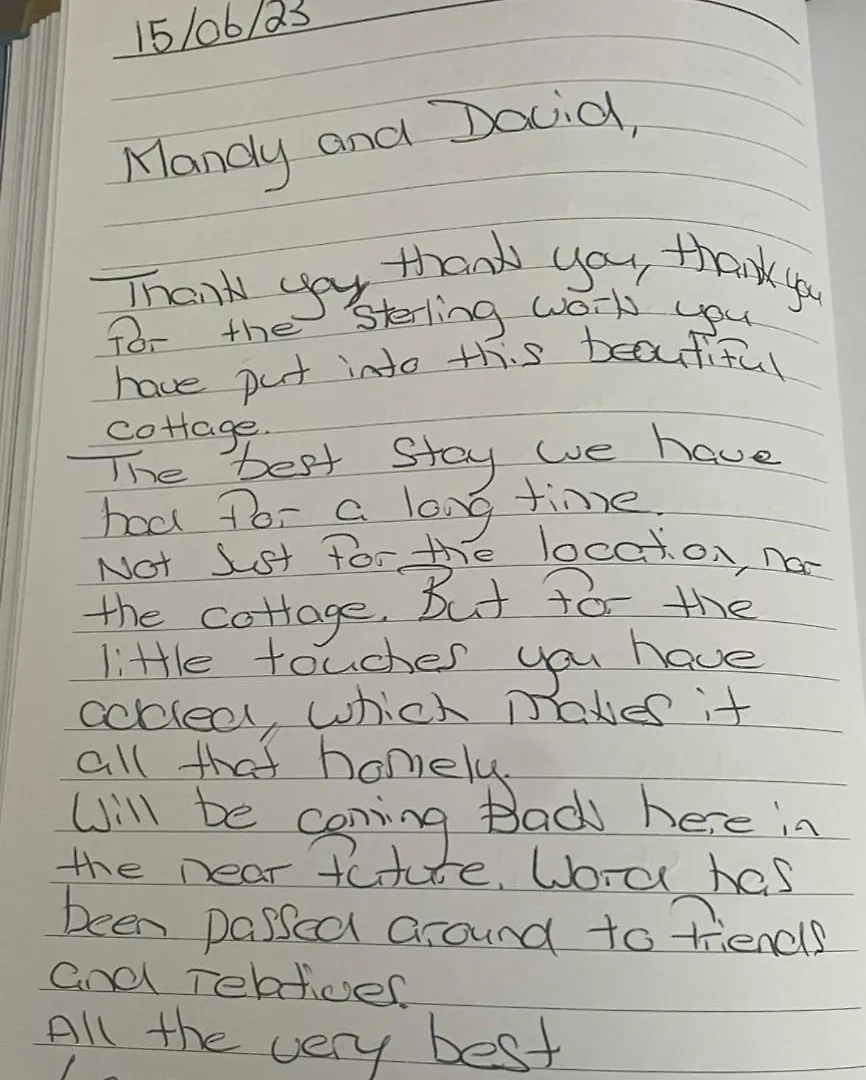 15/06/23
Mandy and David,
Thank you, thank you, thank you
for the sterling work you
have put into this beautiful
cottage.
The best stay we have
had for a long time.
Not Just for the location, nor
the cottage. But for the
little touches you have
added, which makes it
all that homely.
Will be coming Back here in
the near future. Word has
been passed around to friends
and relatives.
All the very best